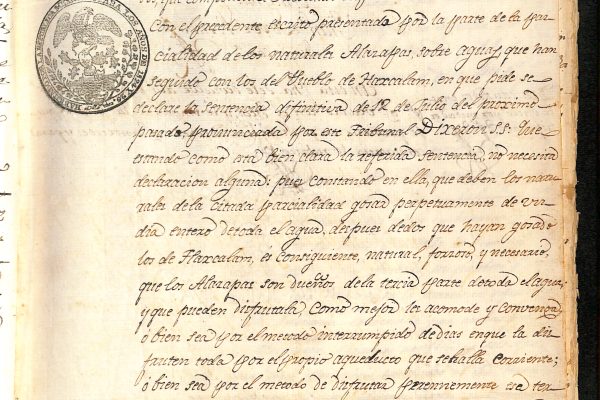 Con el precedente escrito presentada por la parte de la par-
cialidad de los naturales Alazapas, sobre aguas, que han
seguido con los del Pueblo de Tlaxcalam, en que pide se
declare la sentencia difinitiva de 12 de Julio del proximo
pasado, pronunciada por este Tribunal Dixeron SS. Que
estando como está bien clara la referida sentencia, no necesita
declaracion alguna: pues constando en ella, que deben los natu-
rales de la citada parcialidad gosar perpetuamente de un
dia entero de toda el agua, despues de dos que hayan gosado
los de Tlaxcalam, es consiguiente, natural, forsoso, y necesario,
que los Alazapas son dueños de la tercia parte de toda el agua,
y que pueden disfrutala, como mejor les acomode y convenga,
o bien sea por el metodo interrumpido de dias en que la dis-
fruten toda por el propio aqueducto que se halla corriente;
o bien sea por el metodo de disfrutar perennemente esa ter-